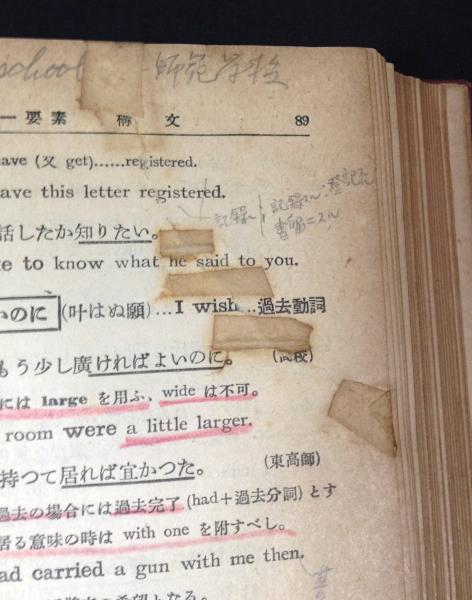 school 師範学校
要素 構 文 89
ave (又 get)......registered.
ave this letter registered.
記録 記録スル, 登記スル
書留ニスル
話したか知りたい。
to know what he said to you.
いのに (叶はぬ願)...I wish...過去動詞
もう少し廣ければよいのに。 (高校)
には large を用ふ、wide は不可。
room were a little larger.
持つて居れば宜かつた。 (東高師)
過去の場合には過去完了 (had+過去分詞) とす
居る意味の時は with one を附すべし。
ad carried a gun with me then.